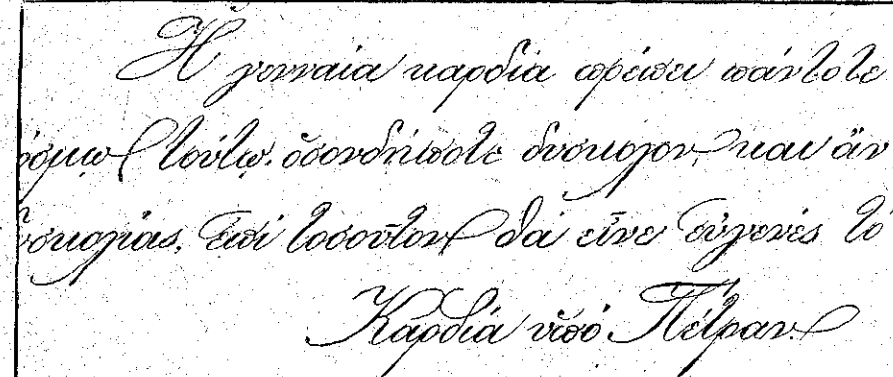 Ἡ γενναία καρδία πρέπει πάντοτε
όσμῳ τούτῳ. ὁσονδήποτε δύσκολον, και ἄν
υσκολίας, ἐπί τοσοῦτον θά εἶνε εὐγενές τό
Καρδία ὑπό Πέτραν.